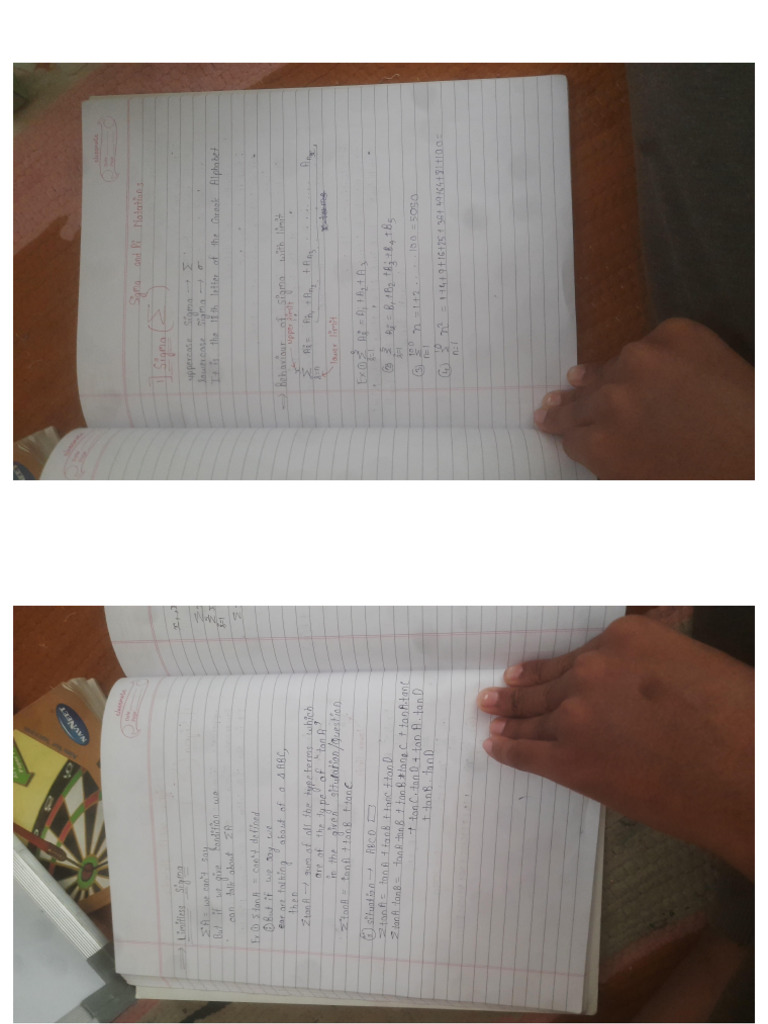 Sigma and Pi Notations
1) Sigma (Σ)
uppercase sigma → Σ
lowercase sigma → σ
It is the 18th letter of the Greek Alphabet
→ Behaviour of Sigma with limit
upper limit
Σ Ai = An₁ + An₂ + An₃ ........ Anx,
i=n
lower limit
Ex ① Σ Ai = A₁ + A₂ + A₃
i=1
② Σ Bi = B₁ + B₂ + B₃ + B₄ + B₅
i=1
③ Σ n = 1+2.....100 = 5050
100
n=1
④ Σ n² = 1+4+9+16+25+36+49+64+81+100=
10
n=1
NAVNEET
classmate
Date
Page
→ Limitless Sigma
ΣA = we can't say
But if we give condition we
can talk about ΣA
Ex ① ΣtanA = can't defined
① But if we say we
are talking about of a ΔABC,
then
ΣtanA → sum of all the terms which
are of the type of "tanA"
in the given situation/Question
ΣtanA = tanA + tanB + tanC
② situation → ABCD ▭
ΣtanA = tanA + tanB + tanC + tanD
ΣtanA tanB = tanA tanB + tanB tanC + tanA.tanC
+ tanC.tanD + tanA.tanD
+ tanB.tanD